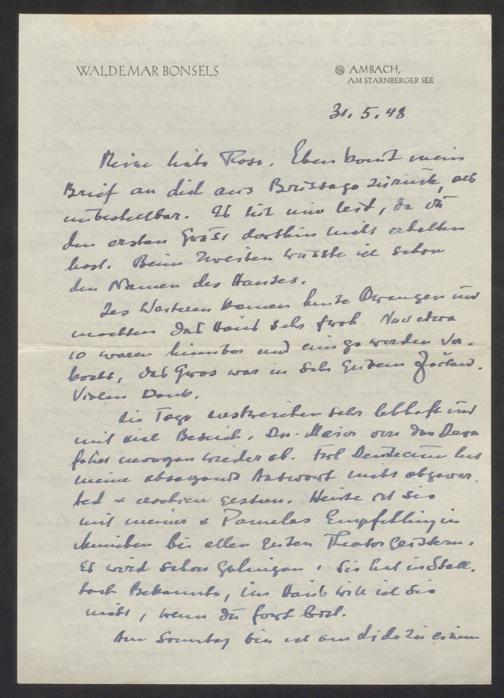 WALDEMAR BONSELS
AMBACH,
AM STARNBERGER SEE
31.5.48
Meine liebe Rose. Eben kommt mein
Brief an dich aus Brissago zurück, als
unbestellbar. Es tut mir leid, da du
den ersten Gruss dorthin nicht erhalten
hast. Beim zweiten wusste ich schon
den Namen des Hauses.
Des Weiteren kamen heute Orangen und
machten das Haus sehr froh. Nur etwa
10 waren hinüber und einige worden
, das Gros war in sehr gutem Zustand.
Vielen Dank.
Die Tage verstreichen sehr lebhaft und
mit viel Besuch. Dr. Maior von der
fährt morgen wieder ab. Frl hat
meine absagende Antwort nicht abgewar-
tet + erschien gestern. Heute ist sie
mit meiner + Pamelas Empfehlung in
München bei allen guten Theatergeistern.
Es wird schon gelingen. Sie hat in
Bekannte, im Haus will ich sie
nicht, wenn du fort bist.
Am Sonntag bin ich zu einem